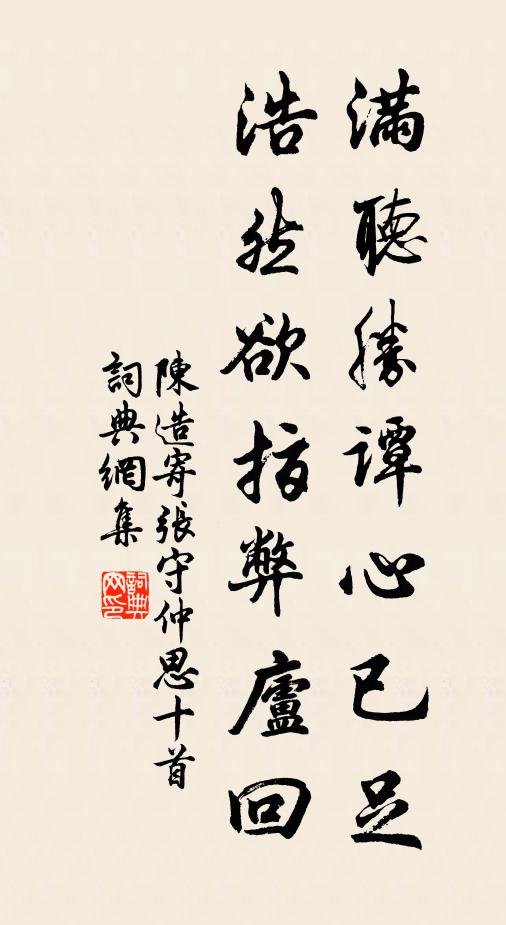 滿聽勝譚心已足
浩然欲指弊廬回
陳造寄張守仲思十首
詞典網集
詞典网印